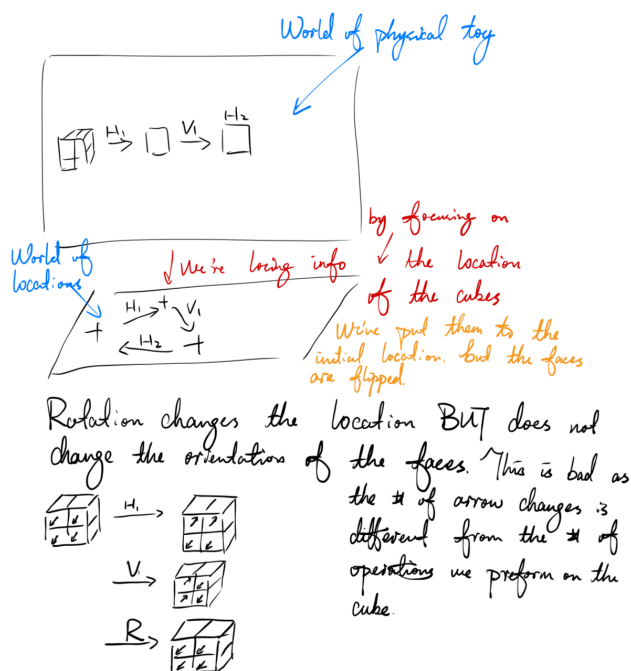 World of physical toy
H₁ V₁ H₂
World of
locations
We're losing info
by focusing on
the location
of the cubes
H₁ V₁
H₂
We've put them to the
initial location. but the faces
are flipped.
Rotation changes the location BUT does not
change the orientation of the faces. This is bad as
the # of arrow changes is
different from the # of
operations we preform on the
cube.
H₁
V
R